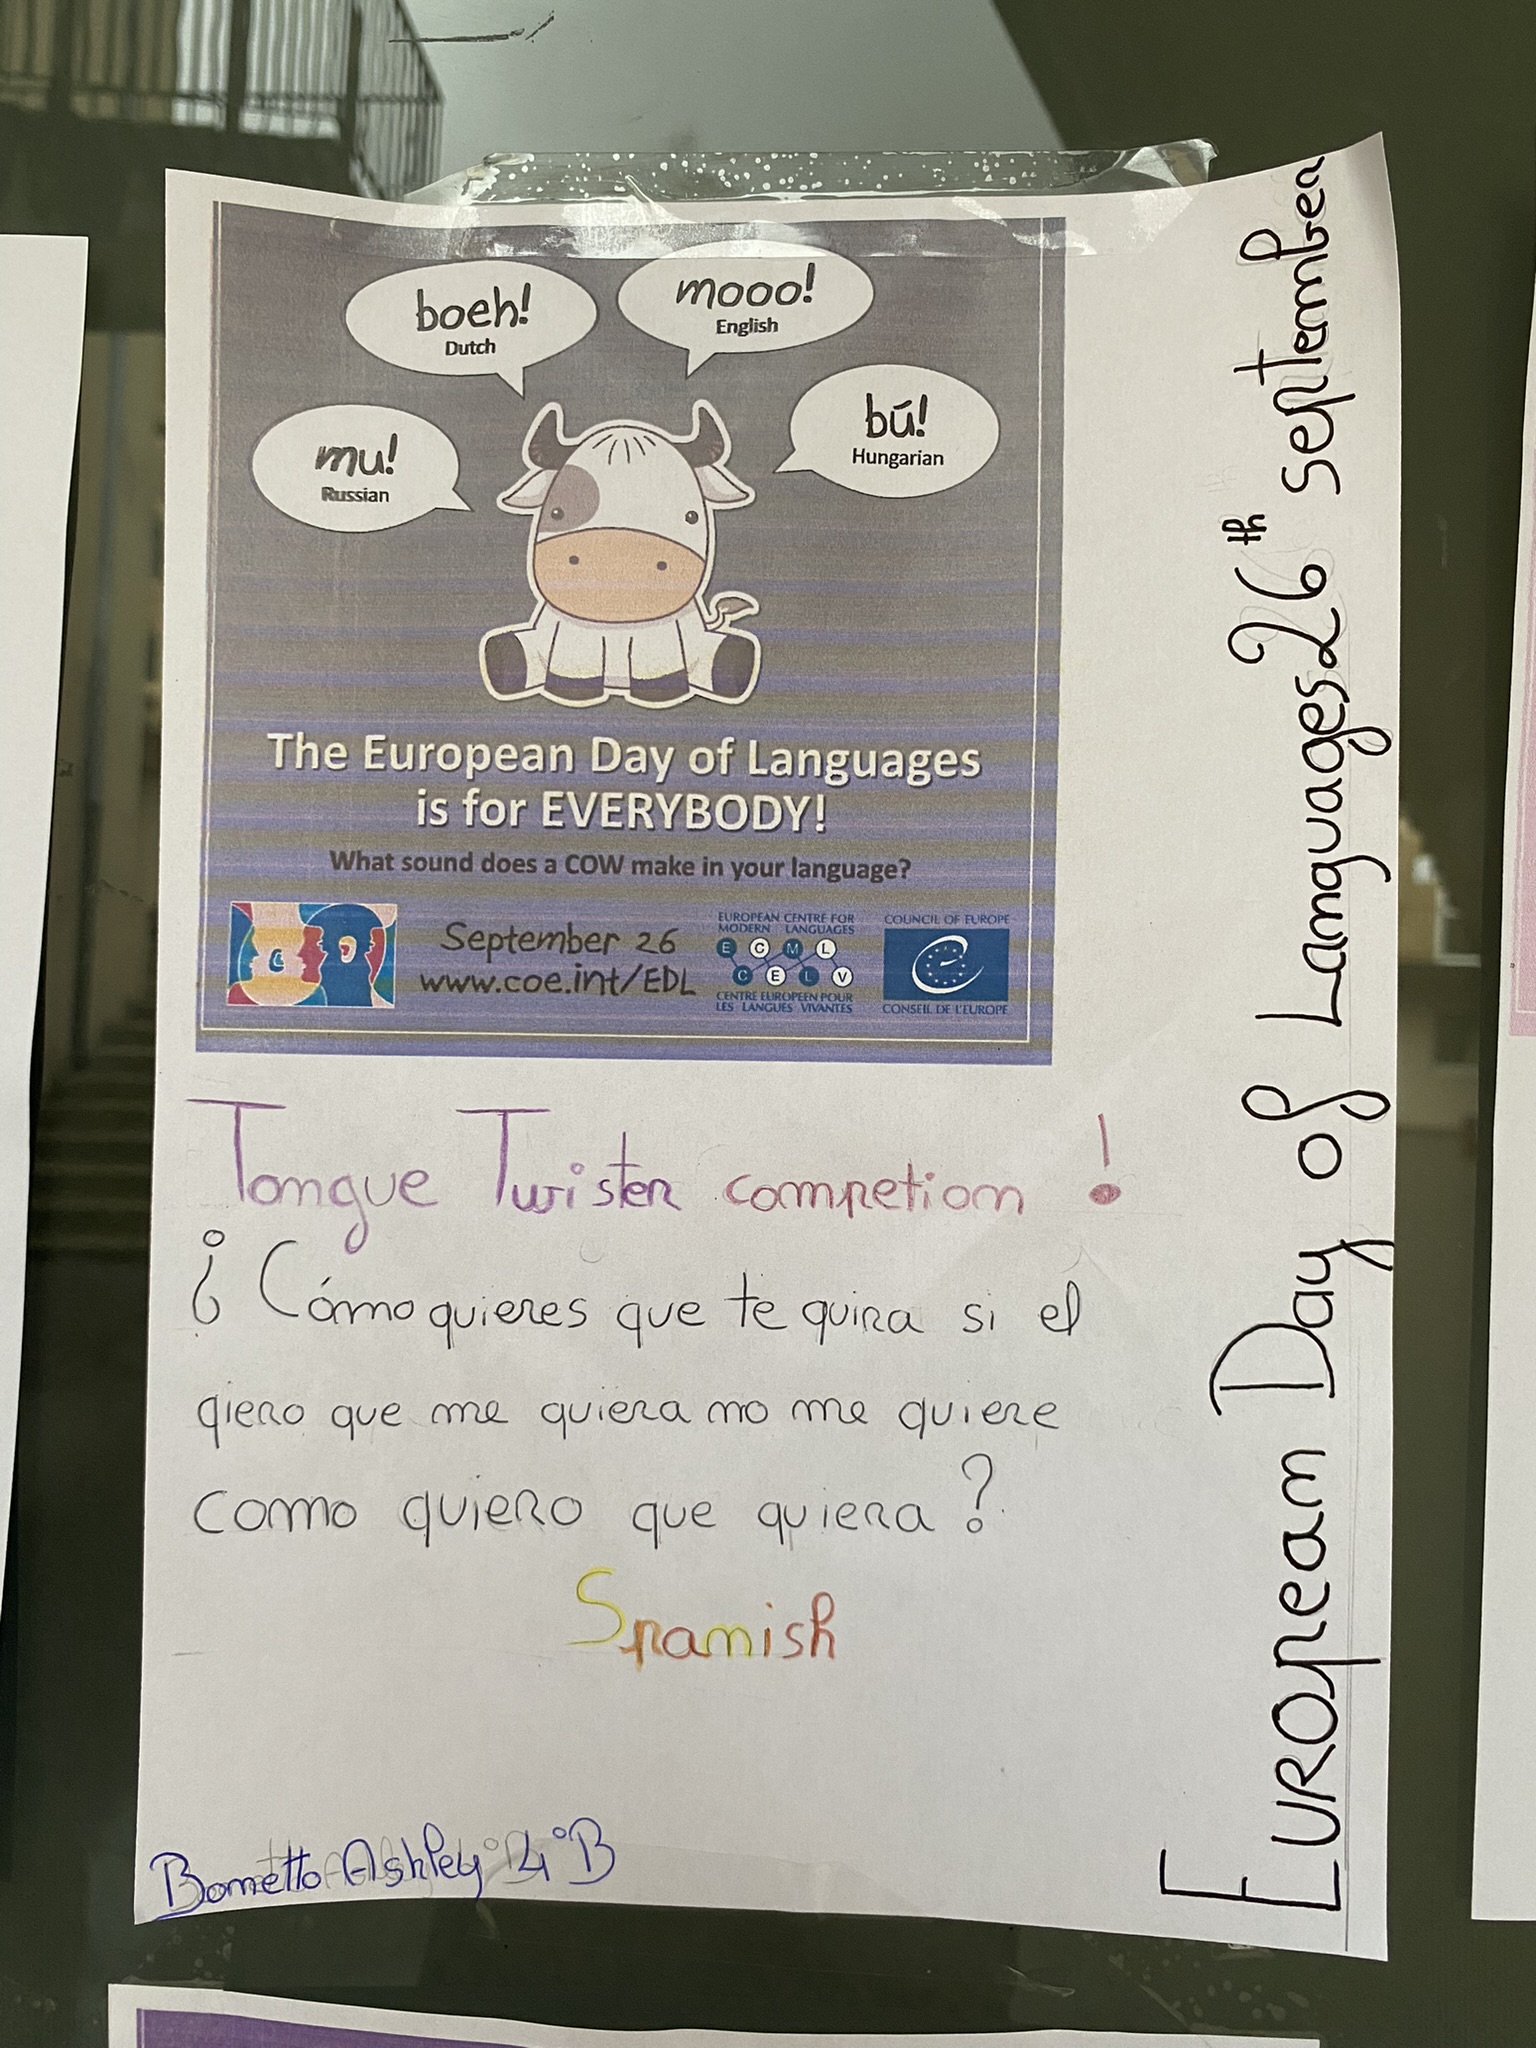 boeh!
Dutch
mooo!
English
mu!
Russian
bú!
Hungarian
The European Day of Languages
is for EVERYBODY!
What sound does a COW make in your language?
September 26
www.coe.int/EDL
EUROPEAN CENTRE FOR
MODERN LANGUAGES
E C M L
C E L V
CENTRE EUROPEEN POUR
LES LANGUES VIVANTES
COUNCIL OF EUROPE
CONSEIL DE L'EUROPE
Tongue Twister competion !
¿ Cómo quieres que te quira si el
qiero que me quiera no me quiere
como quiero que quiera ?
Spanish
Bometto Ashley 4°B
European Day of Languages 26th september